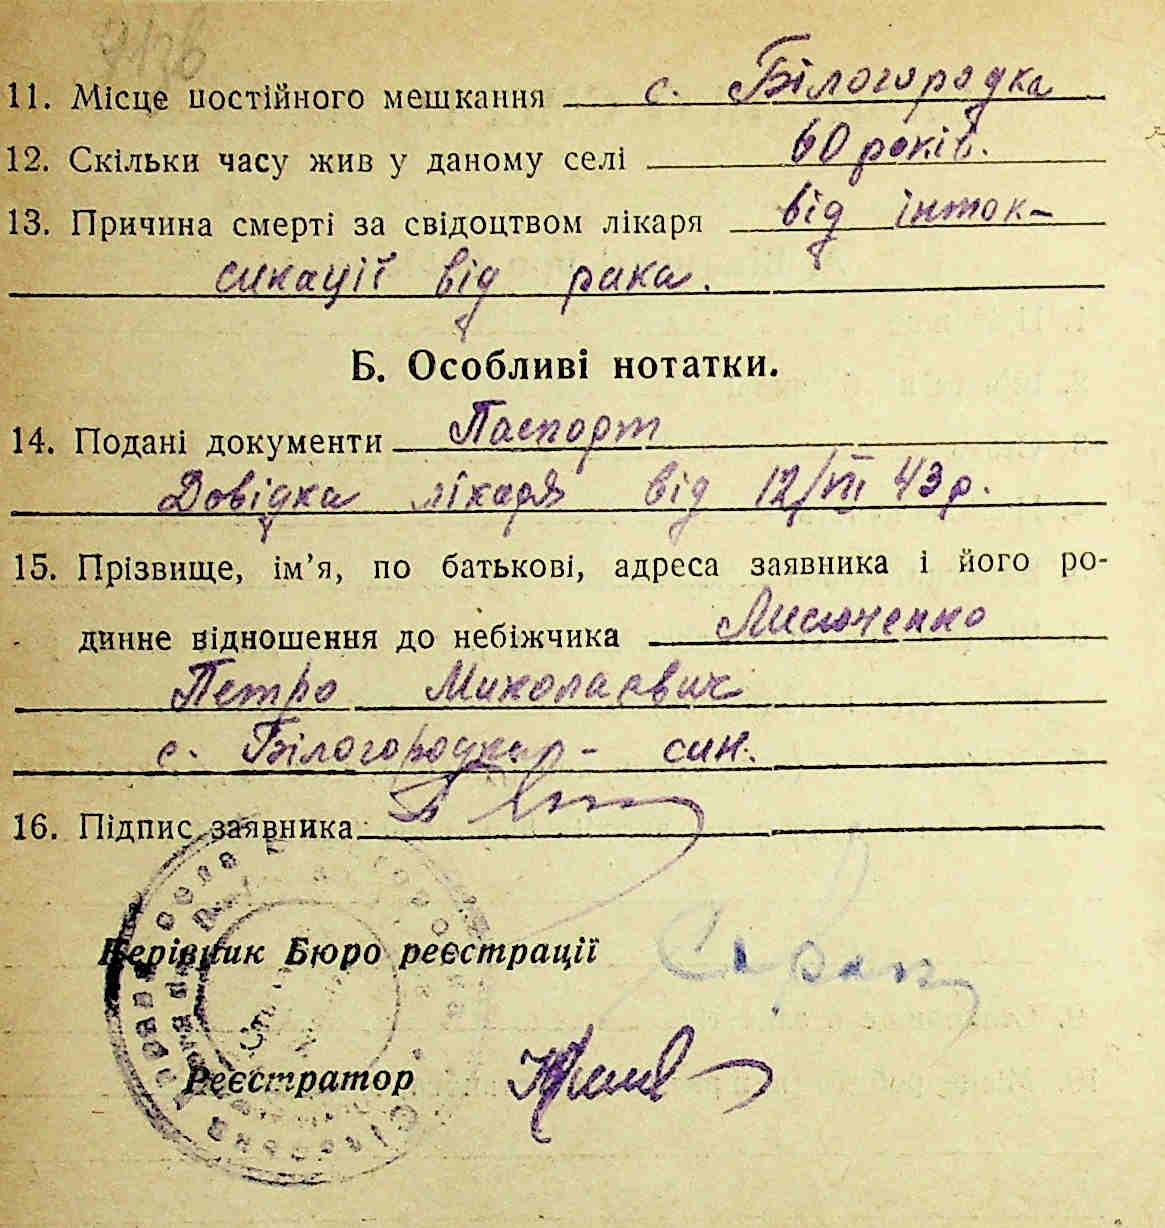 11. Місце постійного мешкання с. Білогородка
12. Скільки часу жив у даному селі 60 років.
13. Причина смерті за свідоцтвом лікаря від інток-
сикації від рака.
Б. Особливі нотатки.
14. Подані документи Паспорт
Довідка лікаря від 12/VII 43 р.
15. Прізвище, ім’я, по батькові, адреса заявника і його ро-
динне відношення до небіжчика
Петро Миколаєвич
с. Білогородка - син.
16. Підпис заявника
Керівник Бюро реєстрації
Реєстратор